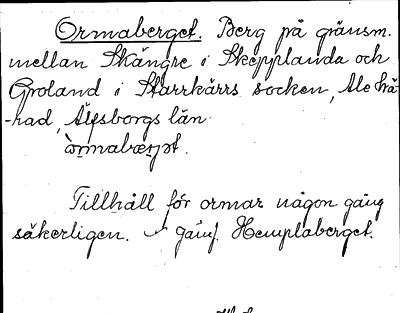 Ormaberget. Berg på gränsm.
mellan Skångre i Skepplanda och
Groland i Starrkärrs socken, Ale hä-
-rad, Älfsborgs län
òrmabærjət.
Tillhåll för ormar någon gång
säkerligen. Jämf. Hemplaberget.